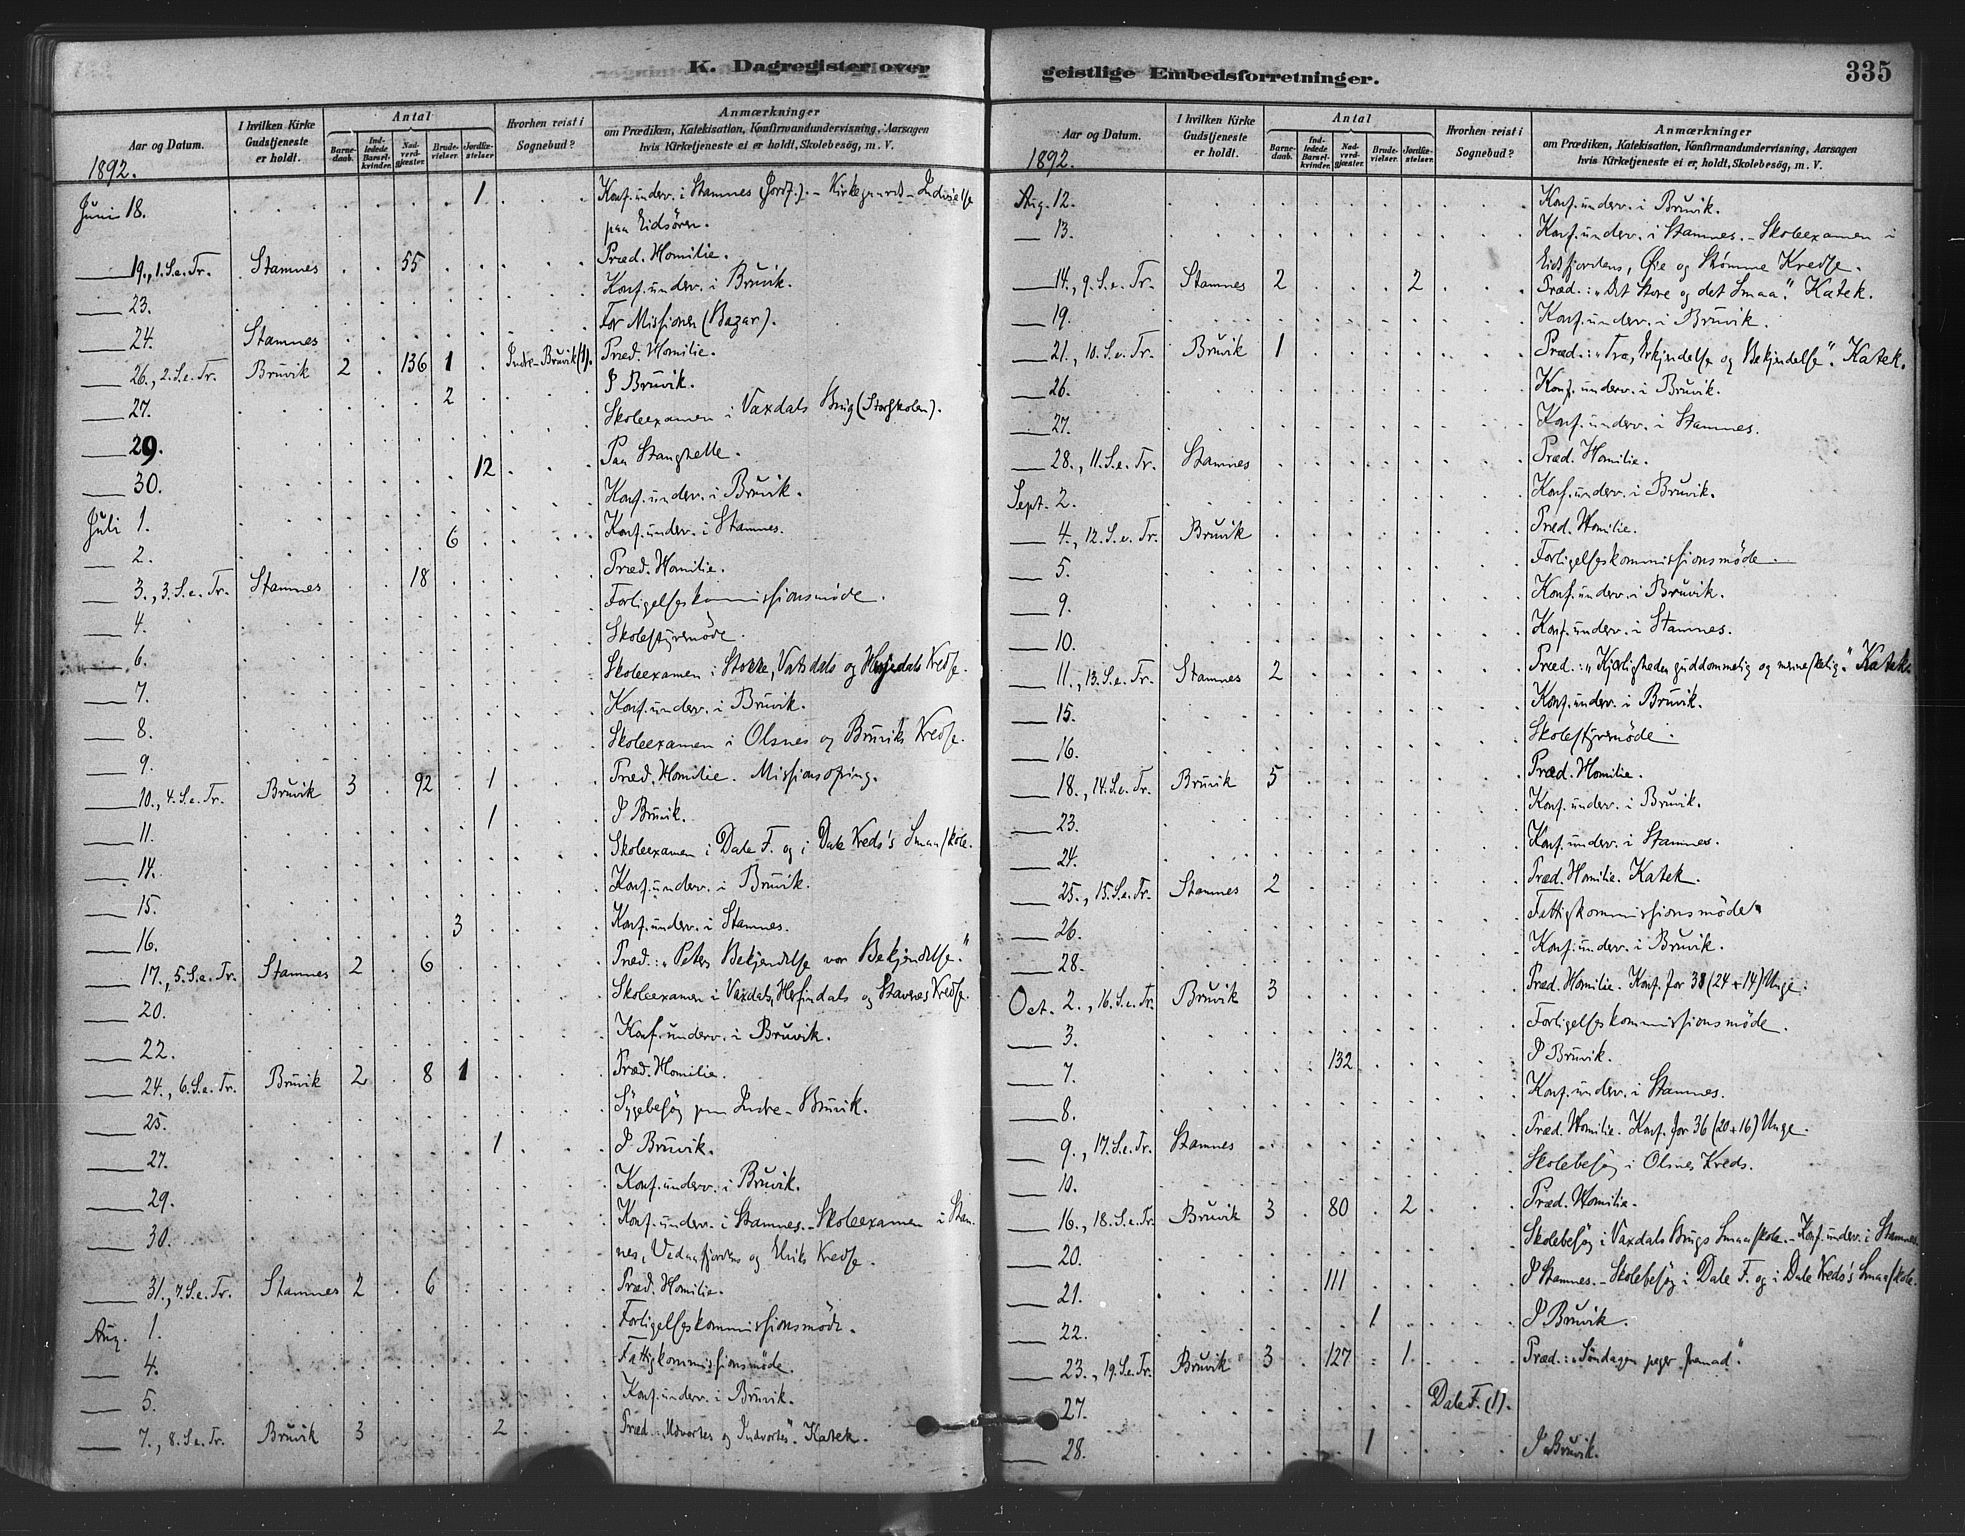 K. Dagregister over
Aar og Datum. | I hvilken Kirke Gudstjeneste er holdt. | Antal | Barnedaab. | Indledede Barselkvinder. | Nadverdgjæster. | Brudevielser. | Jordfæstelser | Hvorhen reist i Sognebud? | Anmærkninger om Prædiken, Katekisation, Konfirmandundervisning, Aarsagen hvis Kirketjeneste ei er holdt, Skolebesög, m. V.
1892.
Juni 18. 1 Konf. underv. i Stamnes (Jordf.). – Kirkegaards-Indvielse
paa Eidsören.
19., 1. S. e. Tr. Stamnes 55 Præd. Homilie.
23. Konf. underv. i Bruvik.
24. Stamnes For Missionen (Bazar).
26., 2. S. e. Tr. Bruvik 2 136 1 Indre-Bruvik (1). Præd. Homilie.
27. 2 I Bruvik.
29. Skoleexamen i Vaxdals Brug (Storskolen).
30. 12 Paa Stanghelle.
Juli 1. Konf. underv. i Bruvik.
2. 6 Konf. underv. i Stamnes.
3., 3. S. e. Tr. Stamnes 18 Præd. Homilie.
4. Forligelseskommissionsmöde.
6. Skolestyrsmöde.
7. Skoleexamen i Stokke, Vatsdals og Kredse.
8. Konf. underv. i Bruvik.
9. Skoleexamen i Olsnes og Bruviks Kredse.
10., 4. S. e. Tr. Bruvik 3 92 1 Præd. Homilie. Missionsofring.
11. 1 I Bruvik.
14. Skoleexamen i Dale F. og i Dale Kreds's Smaaskole.
15. Konf. underv. i Bruvik.
16. 3 Konf. underv. i Stamnes.
17., 5. S. e. Tr. Stamnes 2 6 Præd.: „Peters Bekjendelse vor Bekjendelse."
20. Skoleexamen i Vaxdals, Herfindals og Stavenes Kredse.
22. Konf. underv. i Bruvik.
24., 6. S. e. Tr. Bruvik 2 8 1 Præd. Homilie.
25. Sygebesög paa Indre-Bruvik.
27. 1 I Bruvik.
29. Konf. underv. i Bruvik.
30. Konf. underv. i Stamnes. – Skoleexamen i Stam-
nes, Vedaafjordens og Eliks Kredse.
31., 7. S. e. Tr. Stamnes 2 6 Præd. Homilie.
Aug. 1. Forligelseskommissionsmöde.
4. Fattigkommissionsmöde.
5. Konf. underv. i Bruvik.
7., 8. S. e. Tr. Bruvik 3 2 Præd.: „Udvortes og Indvortes". Katek.
geistlige Embedsforretninger. 335
Aar og Datum. | I hvilken Kirke Gudstjeneste er holdt. | Antal | Barnedaab. | Indledede Barselkvinder. | Nadverdgjæster. | Brudevielser. | Jordfæstelser. | Hvorhen reist i Sognebud? | Anmærkninger om Prædiken, Katekisation, Konfirmandundervisning, Aarsagen hvis Kirketjeneste ei er holdt, Skolebesög, m. V.
1892.
Aug. 12. Konf. underv. i Bruvik.
13. Konf. underv. i Stamnes. – Skoleexamen i
Eidsfjordens, Øie og Stømme Kredse.
14., 9. S. e. Tr. Stamnes 2 2 Præd.: „Det Store og det Smaa." Katek.
19. Konf. underv. i Bruvik.
21., 10. S. e. Tr. Bruvik 1 Præd.: „Tro, Erkjendelse og Bekjendelse". Katek.
26. Konf. underv. i Bruvik.
27. Konf. underv. i Stamnes.
28., 11. S. e. Tr. Stamnes Præd. Homilie.
Sept. 2. Konf. underv. i Bruvik.
4., 12. S. e. Tr. Bruvik Præd. Homilie.
5. Forligelseskommissionsmöde.
9. Konf. underv. i Bruvik.
10. Konf. underv. i Stamnes.
11., 13. S. e. Tr. Stamnes 2 Præd.: „Kjærligheden guddommelig og menneskelig." Katek.
15. Konf. underv. i Bruvik.
16. Skolestyrsmöde.
18., 14. S. e. Tr. Bruvik 5 Præd. Homilie.
23. Konf. underv. i Bruvik.
24. Konf. underv. i Stamnes.
25., 15. S. e. Tr. Stamnes 2 Præd. Homilie. Katek.
26. Fattigkommissionsmöde.
28. Konf. underv. i Bruvik.
Oct. 2., 16. S. e. Tr. Bruvik 3 Præd. Homilie. Konf. for 38 (24+14) Unge.
3. Forligelseskommissionsmöde.
7. 132 I Bruvik.
8. Konf. underv. i Stamnes.
9., 17. S. e. Tr. Stamnes Præd. Homilie. Konf. for 36 (20+16) Unge.
10. Skolebesög i Olsnes Kreds.
16., 18. S. e. Tr. Bruvik 3 80 2 Præd. Homilie.
20. Skolebesög i Vaxdals Brugs Smaaskole. – Konf. underv. i Stamnes.
21. 111 I Stamnes. – Skolebesög i Dale F. og i Dale Kreds's Smaaskole.
22. 1 I Bruvik.
23., 19. S. e. Tr. Bruvik 3 127 1 Præd.: „Söndagen peger fremad".
27. Dale F. (1).
28. 1 I Bruvik.